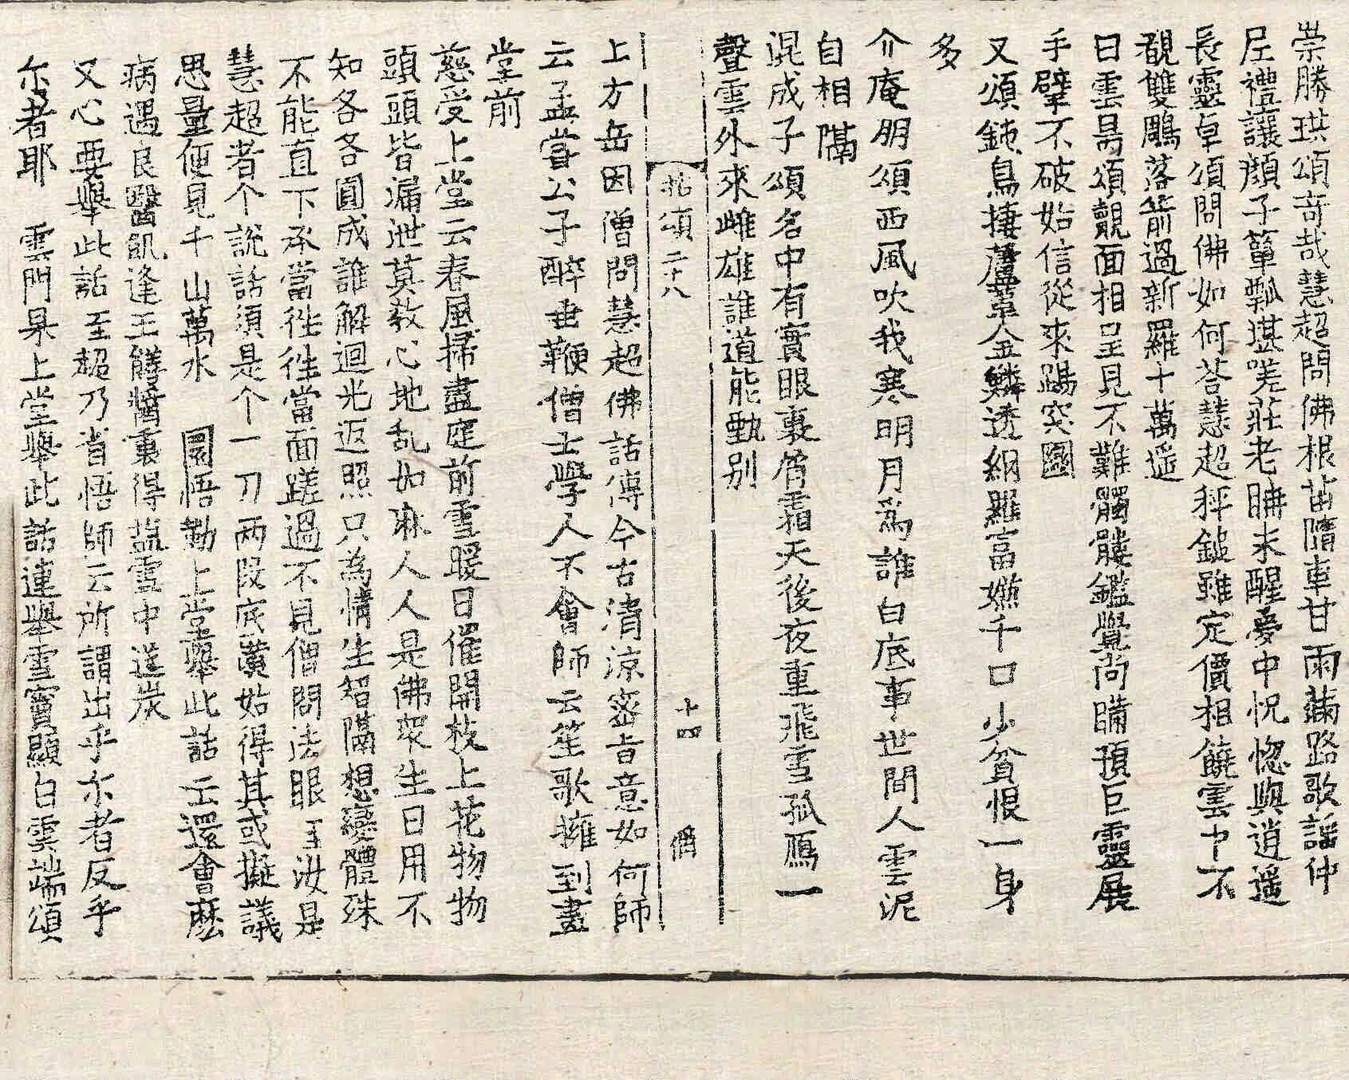 崇勝珙頌奇哉慧超問佛根苗隨車甘雨滿路歌謠仲
尼禮讓顏子簞瓢堪嗟莊老睡未醒夢中怳惚與逍遥
長靈卓頌問佛如何荅慧超秤鎚雖定價相饒雲中不
覩雙鵰落箭過新羅十萬遥
曰雲昺頌覿面相呈見不難髑髏鑑覺尚瞞頇巨靈展
手擘不破始信從來踢突圞
又頌鈍鳥捿蘆葦金鱗透網羅富嫌千口少貧恨一身
多
介庵朋頌西風吹我寒明月爲誰白底事世間人雲泥
自相隔
混成子頌名中有實眼裏屑霜天後夜重飛雪孤鴈一
聲雲外來雌雄誰道能甄别
拈頌二十八 十四
上方岳因僧問慧超佛話傳今古清涼宻旨意如何師
云孟嘗公子醉垂鞭僧云學人不會師云笙歌擁到畫
堂前
慈受上堂云春風掃盡庭前雪暖日催開枝上花物物
頭頭皆漏泄莫教心地乱如麻人人是佛衆生日用不
知各各圓成誰解迴光返照只為情生智隔想變體殊
不能直下承當徃徃當面蹉過不見僧問法眼至汝是
慧超者个說話須是个一刀兩段底漢始得其或擬議
思量便見千山萬水 圜悟勤上堂舉此話云還會麽
病遇良醫飢逢王饍醬裏得塩雪中送炭
又心要舉此話至超乃省悟師云所謂出乎尓者反乎
尓者耶 雲門杲上堂舉此話連舉雪竇顯白雲端頌